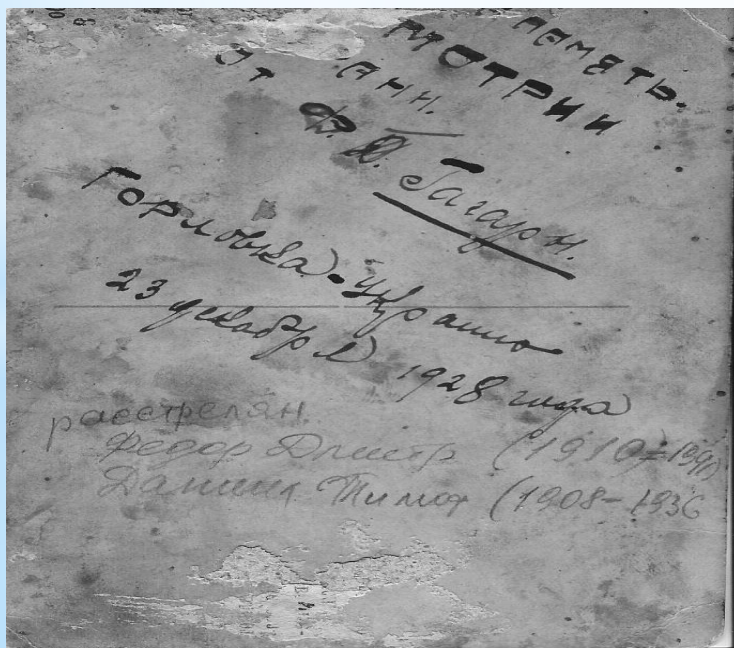 ПАМЯТЬ.
МОТРИИ
АНН.
от Ф. Д. Гагарн.
Горловка. Украино
23 декабря 1928 года
расстрелян.
Федор Дмитр (1910-1940)
Даниил Тимоф (1908-1936